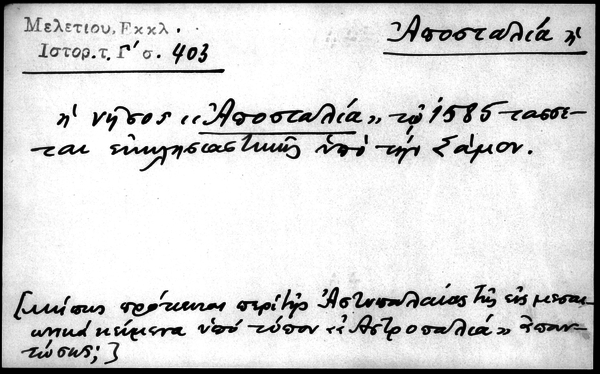 Μελετίου, Εκκλ.
Ιστορ. τ. Γ' σ. 403
Ἀποσταλιά ἡ
ἡ νῆσος «Ἀποσταλιά» τῷ 1585 τάσσε-
ται ἐκκλησιαστικῶς ὑπό τήν Σάμον.
[Μήπως πρόκειται περί τῆς Ἀστυπαλαίας τῆς εἰς μεσαι-
ωνικά κείμενα ὑπό τύπον «ἡ Ἀστροπαλιά» ἀπαν-
τώσης;]